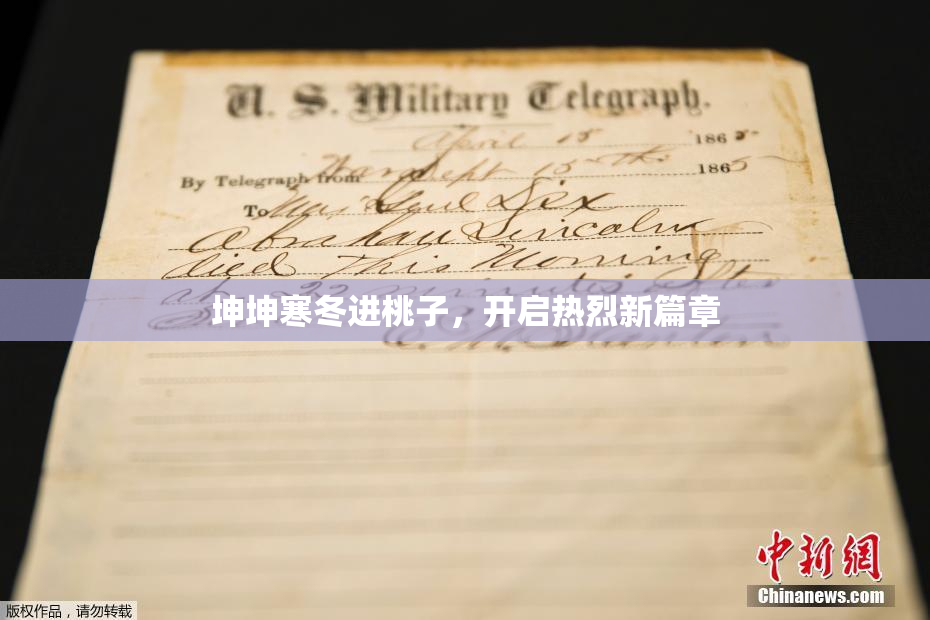 U. S. Military Telegraph.
April 15 1865
By Telegraph from War Dept 15th 1865
To Maj Genl Dix
Abraham Lincoln
died This Morning
at 22 minutes after
坤坤寒冬进桃子，开启热烈新篇章
E. M. Stanton
中新网
Chinanews.com
版权作品，请勿转载